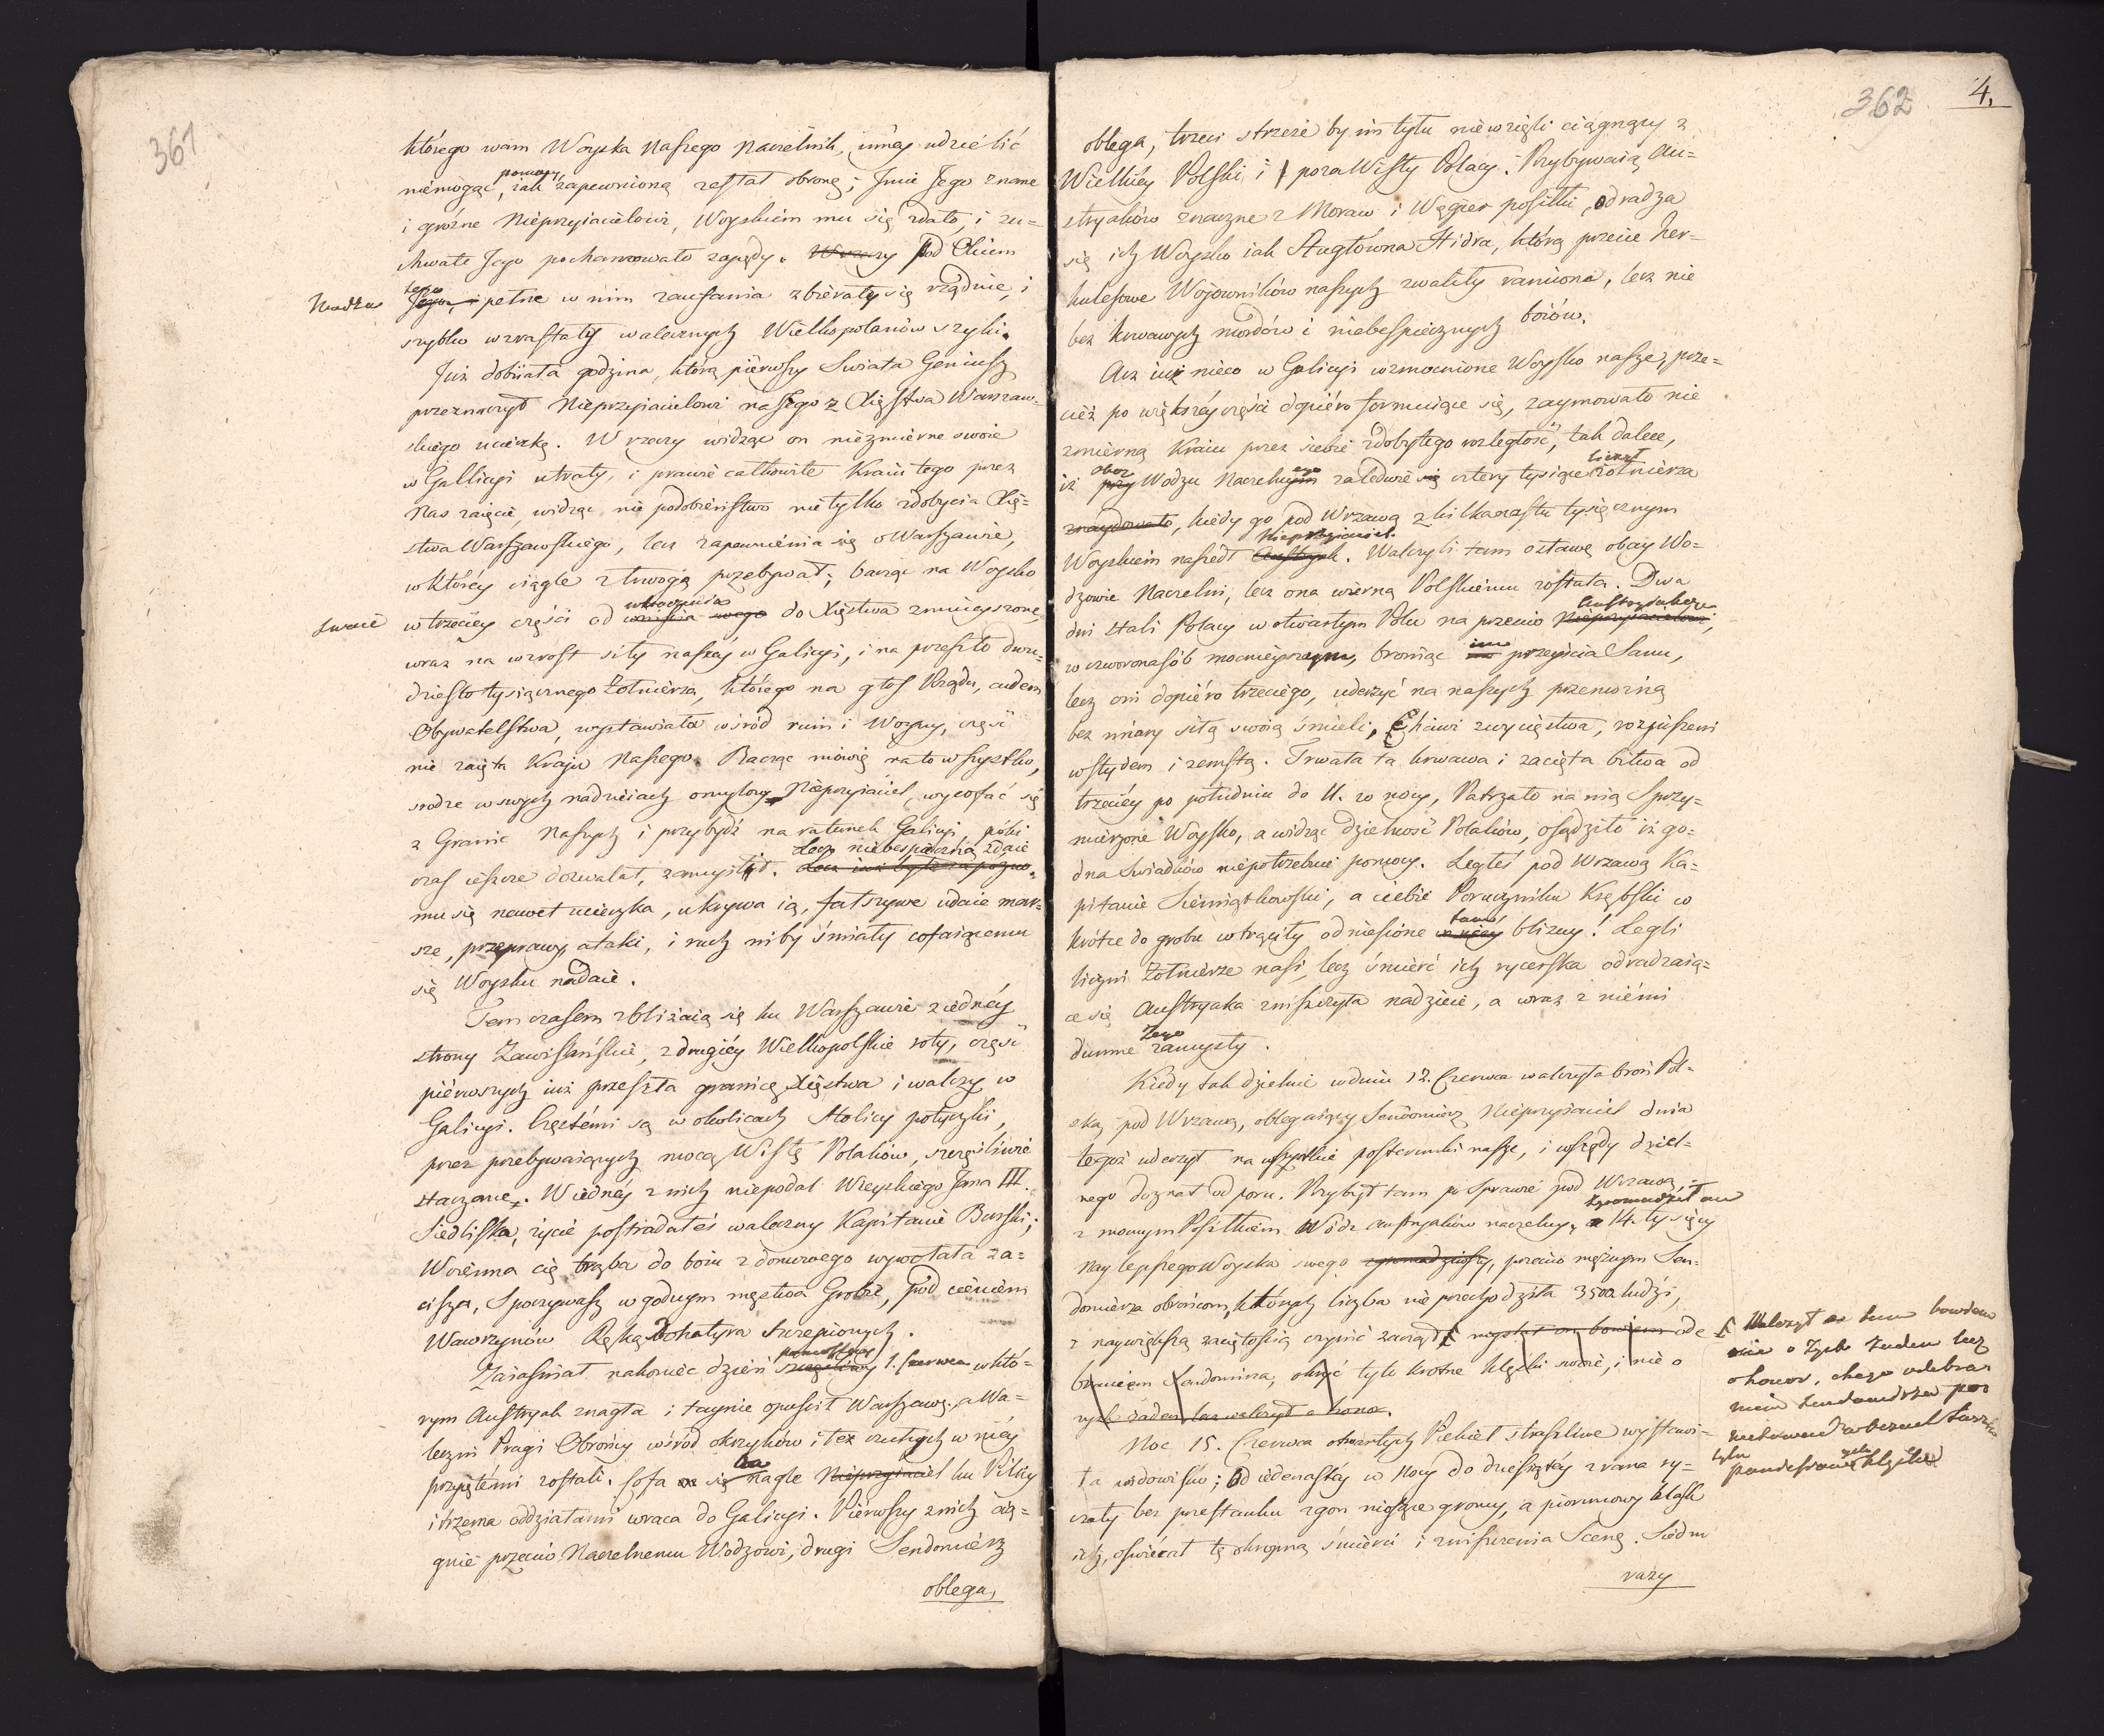 361
którego wam Woyska Naszego Naczelnik, inney udzielić
pomocy
niemogąc, iak zapewnioną zostal obroną; Imie Jego znane
i groźne Nieprzyiacielowi, Woyskiem mu się zdało, i zu=
chwałe Jego pohamowało zapędy. Wrzesczy pod Okiem
Wodza tego Jego, i pełne w nim zaufania zbierały się rządnie, i
szybko wzrastały walecznych Wielkopolanów szyki.
Już dobiiała godzina, którą pierwszy Swiata Geniusz
przeznaczył Nieprzyiacielowi naszego z Xięstwa Warszaw=
skiego ucieczkę. W rzeczy widząc on niezmierne swoie
w Gallicyi utraty, i prawie całkowite Kraiu tego przez
Nas zaięcie, widząc nie podobieństwo nie tylko zdobycia Xię=
stwa Warszawskiego, lecz zapewnienia się o Warszawie,
w któréy ciągle z trwogą przebywał; bacząc na Woysko
wkroczenia
swoie w trzeciéy części od weyścia swego do Xięstwa zmnieyszone,
wraz na wzrost siły naszéy w Galicyi, i na przeszło dwu=
dziesto tysiącznego Żołnierza, którego na głos Rządu, cudem
Obywatelstwa, wystawiała wśród ruin i Woyny, część
nie zaięta Kraju Naszego. Bacząc mówię na to wszystko,
srodze w swych nadzieiach omylony Nieprzyiaciel, wycofać się
z Granic Naszych i przybydź na ratunek Galicyi, póki
Lecz niebespieczną zdaie
czas ieszcze dozwalał, zamyślił. Lecz iuż było zapóźno.
mu się nawet ucieczka, ukrywa ią, fałszywe udaie mar=
sze, przeprawy, ataki, i ruch niby śmiały cofaiącemu
się Woysku nadaie.
Tem czasem zbliżaią się ku Warszawie z iednéy
strony Zawislańskie, z drugiéy Wielkopolskie roty, część
piérwszych iuż przeszła granicę Xięstwa i walczy w
Galicyi. Częstémi są w okolicach Stolicy potyczki,
przez przebywaiących mocą Wisłę Polaków, szczęśliwie
staczane. W iednéy z nich niepodal Wieyskiego Jana III.
Siedliska, życie postradałeś waleczny Kapitanie Burski;
Woienna cię trąba do boiu z domowego wywołała za=
cisza, Spoczywasz w godnym męstwa Grobie, pod cieniem
Wawrzynów Ręką Bohatyra szczepionych.
pamiętny
Zaiaśniał nakoniec dzień szczęśliwy 1. Czerwca w któ=
rym Austryak znagła i taynie opuścił Warszawę, a Wa=
leczni Pragi Obrońcy wśród okrzyków i łez czułych w niéy
przyiętémi zostali. Cofa on się nagle Nieprzyiaciel ku Pilicy
i trzema oddziałami wraca do Galicyi. Piérwszy z nich cią=
gnie przeciw Naczelnemu Wodzowi, drugi Sendomiérz
oblega,
362
4.
oblega, trzeci strzeże by im tyłu niewzięli ciągnący z
Wielkiéy Polski i poza Wisły Polacy. Przybywaią Au=
stryaków znaczne z Moraw i Węgier posiłki, odradza
się ich Woysko iak Stugłówna Hidra, którą przecie her=
kulesowe Woiowników naszych zwaliły ramiona, lecz nie
bez krwawych mordów i niebespiecznych boiów.
Acz iuż nieco w Galicyi wzmocnione Woysko nasze, prze=
cież po większéy części dopiéro formuiące się, zaymowało nie
zmierną Kraiu przez siebie zdobytego rozległość, tak dalece,
obóz ego liczył
iż przy Wodzu Naczelnym zaledwie się cztery tysiące żołnierza
znaydowało, kiedy go pod Wrzawą z kilkanastu tysiącznym
Nieprzyiaciel
Woyskiem naszedł Austryak. Walczyli tam o sławę obay Wo=
dzowie Naczelni, lecz ona wierną Polskiemu została. Dwa
Austryakowi
dni stali Polacy w otwartym Polu na przeciw Nieprzyiacielowi,
w czwornasób mocnieyszym, broniąc im przeyścia Sanu,
lecz oni dopiéro trzeciego, uderzyć na naszych przemożną
bez miary siłą swoią śmieli, Chciwi zwycięstwa, rozjuszeni
wstydem i zemstą. Trwała ta krwawa i zacięta bitwa od
trzeciéy po południu do 11. w nocy, Patrzało na nią Sprzy=
mierzone Woysko, a widząc dzielność Polaków, osądziło iż go=
dna Świadków niepotrzebuie pomocy. Ległeś pod Wrzawą Ka=
pitanie Siemiątkowski, a ciebie Poruczniku Krębski w
tamże
krótce do grobu wtrąciły odniesione w niéy blizny! Legli
liczni Żołnierze nasi, lecz śmierć ich rycerska odradzaią=
ce się Austryaka zniszczyła nadzieie, a wraz z niémi
Jego
dumne zamysły.
Kiedy tak dzielnie w dniu 12. Czerwca walczyła broń Pol=
ska, pod Wrzawą, oblegaiący Sendomierz Nieprzyiaciel dnia
tegoż uderzył na wszystkie posterunki nasze, i wszędy dziel=
nego doznał odporu. Przybył tam po Sprawie pod Wrzawą,
zgromadził on
z mocnym Posiłkiem Wódz Austryaków naczelny, z 14. tysięcy
naylepszego Woyska swego zgromadziwszy, przeciw mężnym Sen=
domierza obrońcom, których liczba nie przechodziła 3500 ludzi,
z naywiększą zaciętością czynić zaczął myślał on bowiem ode
braniem Sendomierza, okryć tyle krotne klęski swoie, i nie o
zysk żaden lecz walczył o honor.
Walczył on tam bowiem
nie o Zysk żaden lecz
o honor, chcąc odebra=
niem Sendomirza
tylu poniesione klęski
Noc 15. Czerwca otwartych Piekieł straszliwe wystawi=
ła widowisko; Od iedenastéy w Nocy do dziesiątéy z rana ry=
czały bez przestanku zgon niosące gromy, a piorunowy blask
ich, oświecał tę okropną śmierci i zniszczenia Scenę. Siedm
razy